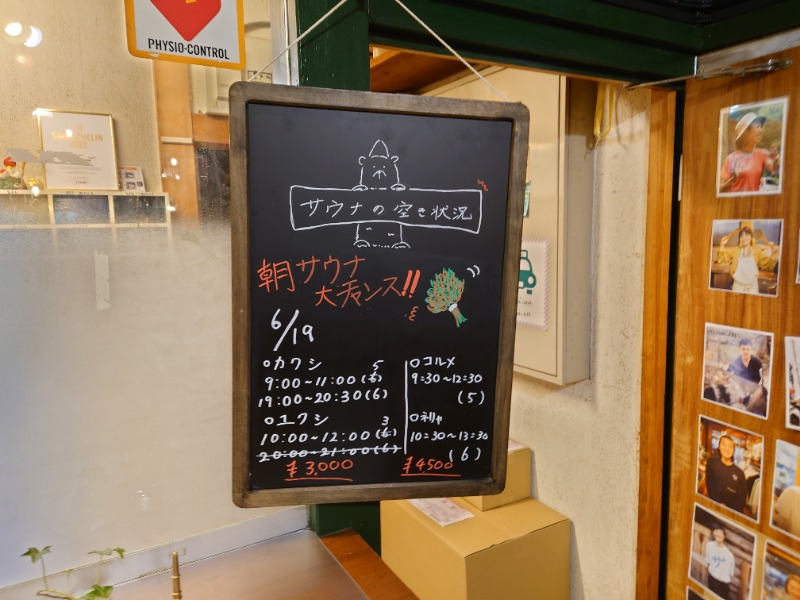 PHYSIO-CONTROL
サウナの空き状況
朝サウナ
大チャンス!!
6/19
○カクシ
9:00~11:00(5)
19:00~20:30(6)
○ユクシ
10:00~12:00(3)
20:00~21:00(6)
¥3,000
○コルメ
9:30~12:30
(5)
○ネリャ
10:30~13:30
(6)
¥4500